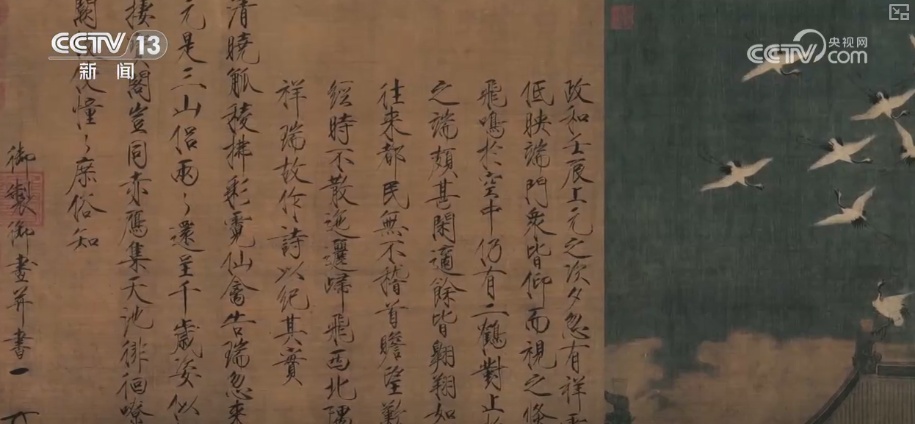 CCTV 13
新闻
CCTV 央视网
.com
政和壬辰上元之次夕忽有祥
低映端門衆皆仰而視之倏
飛鳴於空中仍有二鶴對上
之端頗甚閑適餘皆翱翔如
往来都民無不稽首瞻望歎
經時不散迤邐歸飛西北隅
祥瑞故作詩以紀其實
清曉觚稜拂彩霓仙禽告瑞忽来
元是三山侣兩〻還呈千歳姿似
棲閣豈同赤鴈集天池徘徊嘹
憧〻庶俗知
御製御畫并書